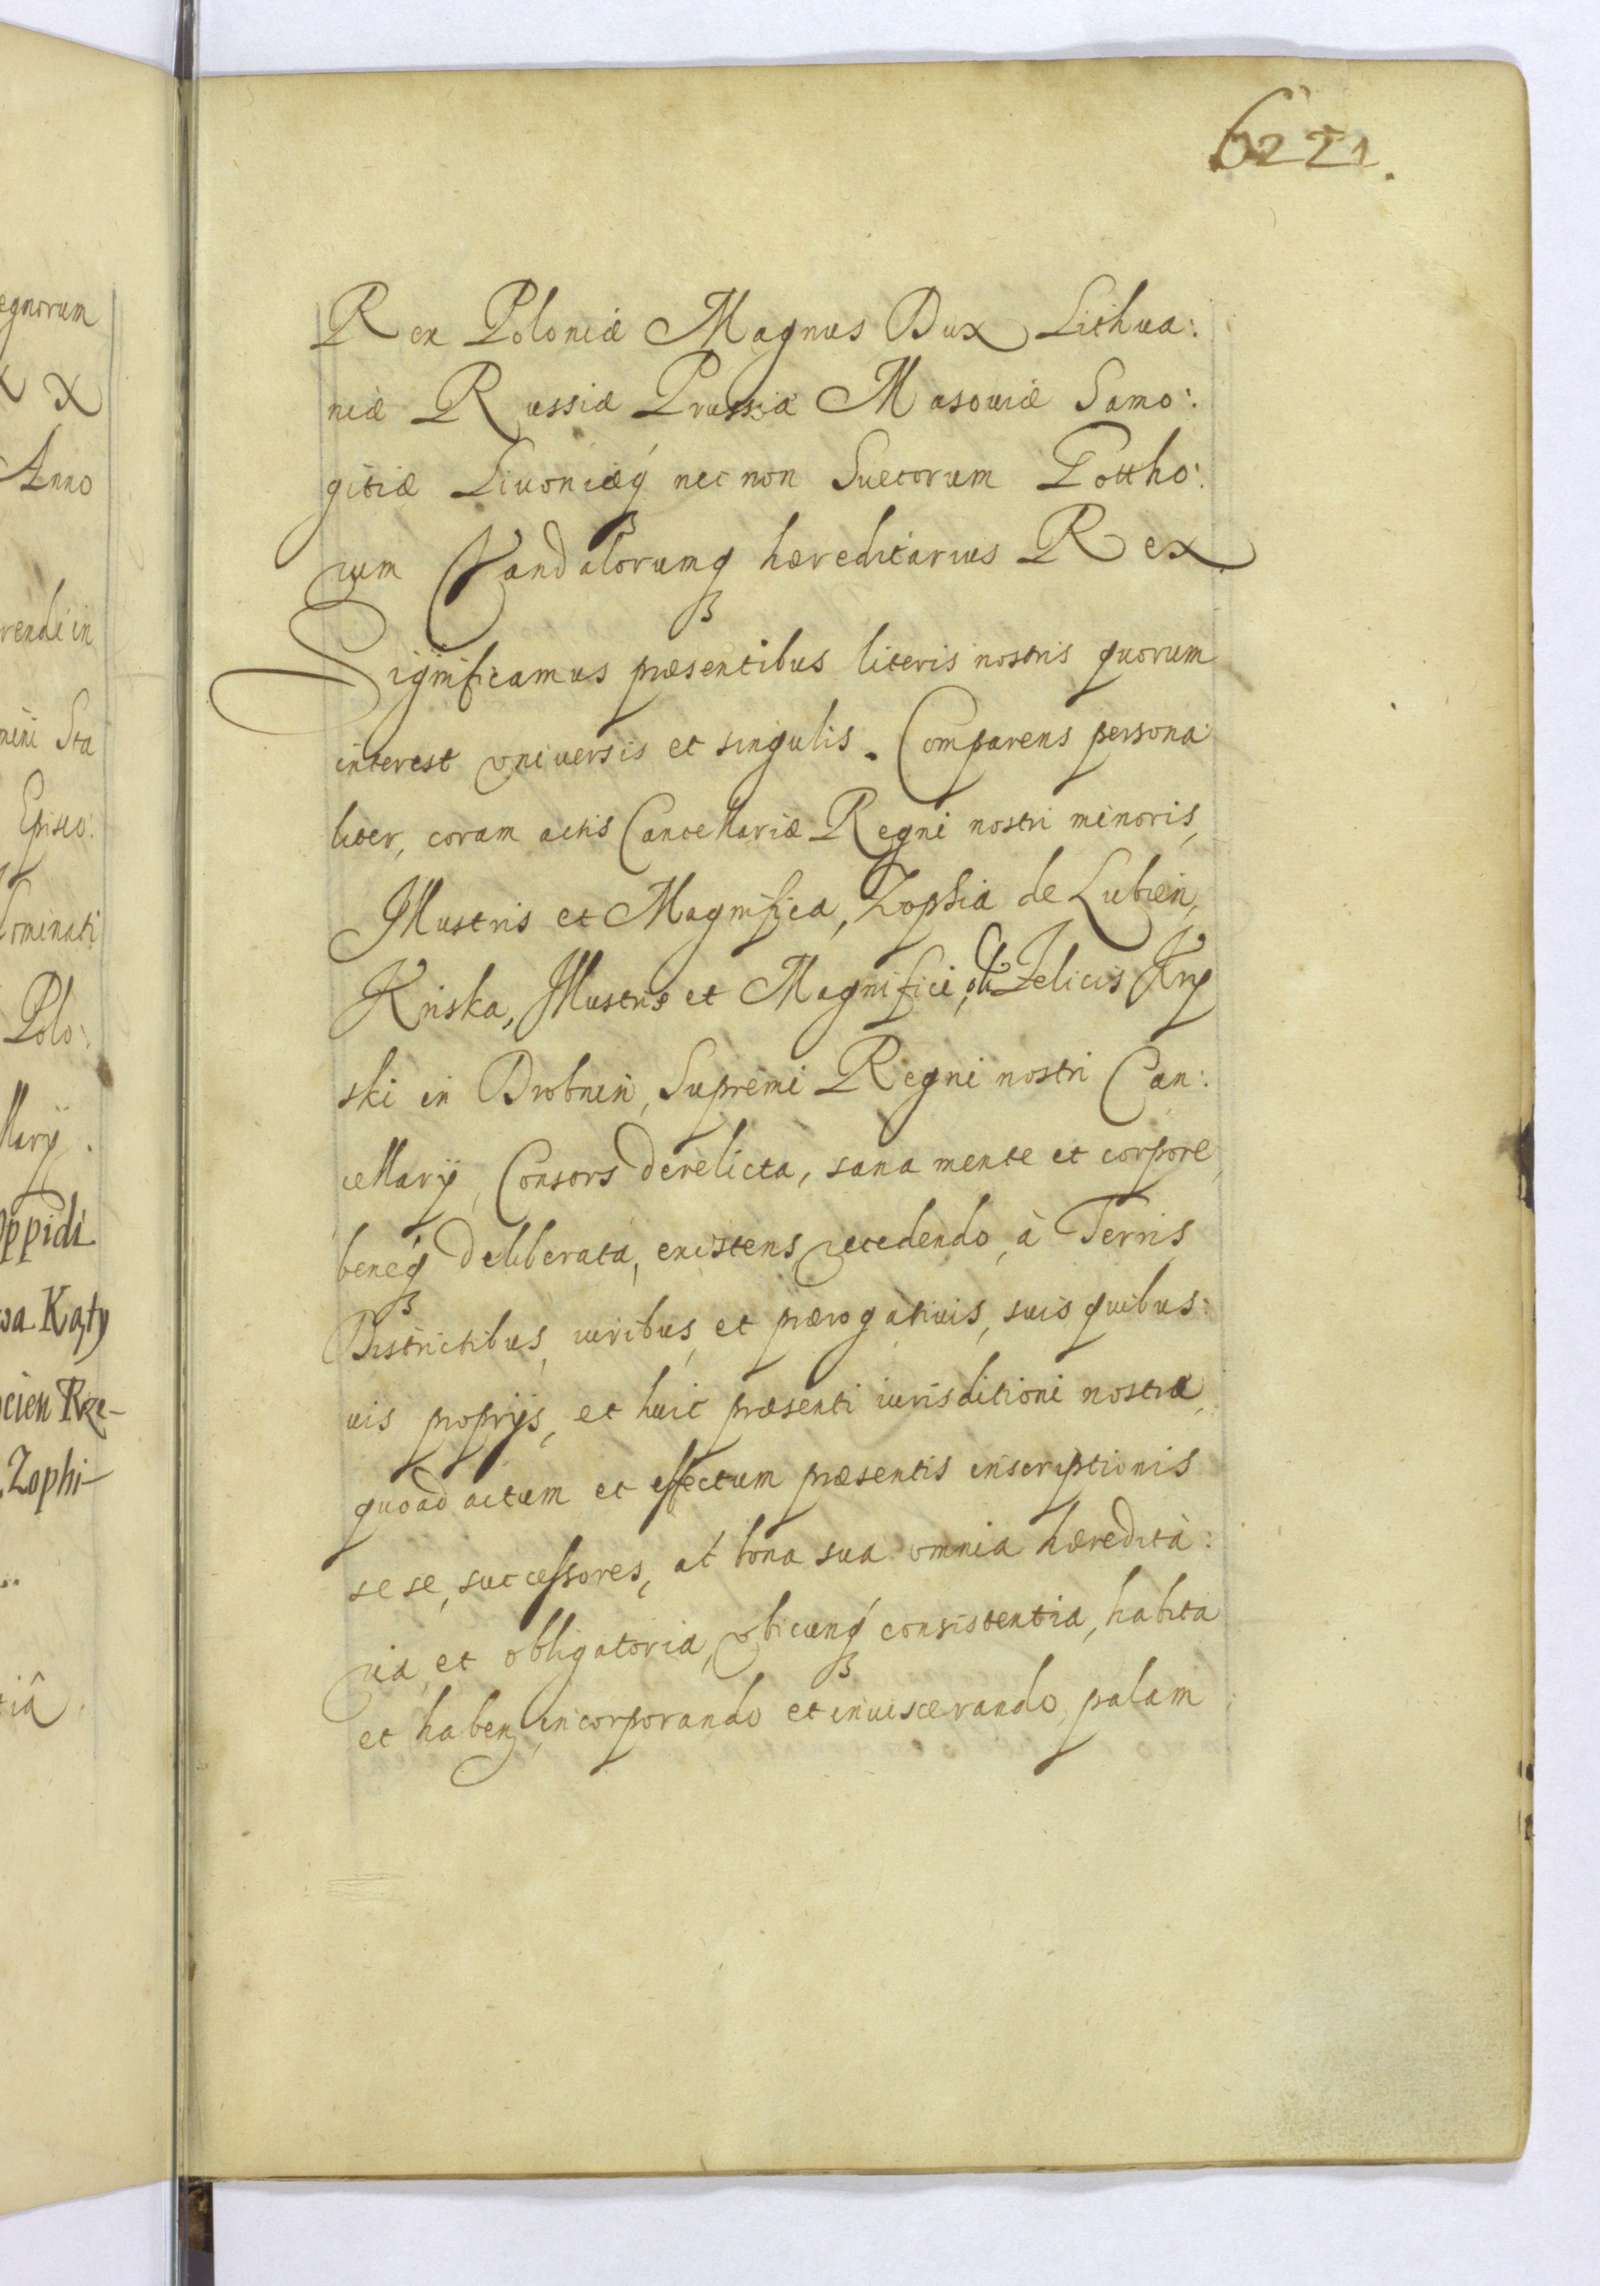 egnorum
x x
Anno
rendi in
mini Sta
Episco:
nominati
Polo:
llarij.
Oppidi
wa Kąty
ocien Rze-
Zophi-
tiâ
6221.
Rex Poloniæ Magnus Dux Lithua:
niæ Russiæ Prussiæ Masouiæ Samo:
gitiæ Liuoniæq́ nec non Suecorum Gottho:
rum Vandalorumq hæreditarius Rex
Significamus præsentibus literis nostris quorum
interest vniuersis et singulis. Comparens persona
liter, coram actis Cancellariæ Regni nostri minoris,
Illustris et Magnifica, Zophia de Lubień,
Kriska, Illustris et Magnifici, olī Felicis Kry
ski in Drobnin, Supremi Regni nostri Can:
cellarij, Consors derelicta, sana mente et corpore,
beneq́ deliberata, existens, recedendo, à Terris
Districtibus, iuribus, et prærogatiuis, suis quibus:
uis proprijs, et huic præsenti iurisditioni nostræ,
quoad actum et effectum præsentis inscriptionis
sese, successores, ac bona sua omnia hæredita:
ria, et obligatoria, vbicunq́ consistentia, habita
et haben, incorporando et inuiscerando, palam